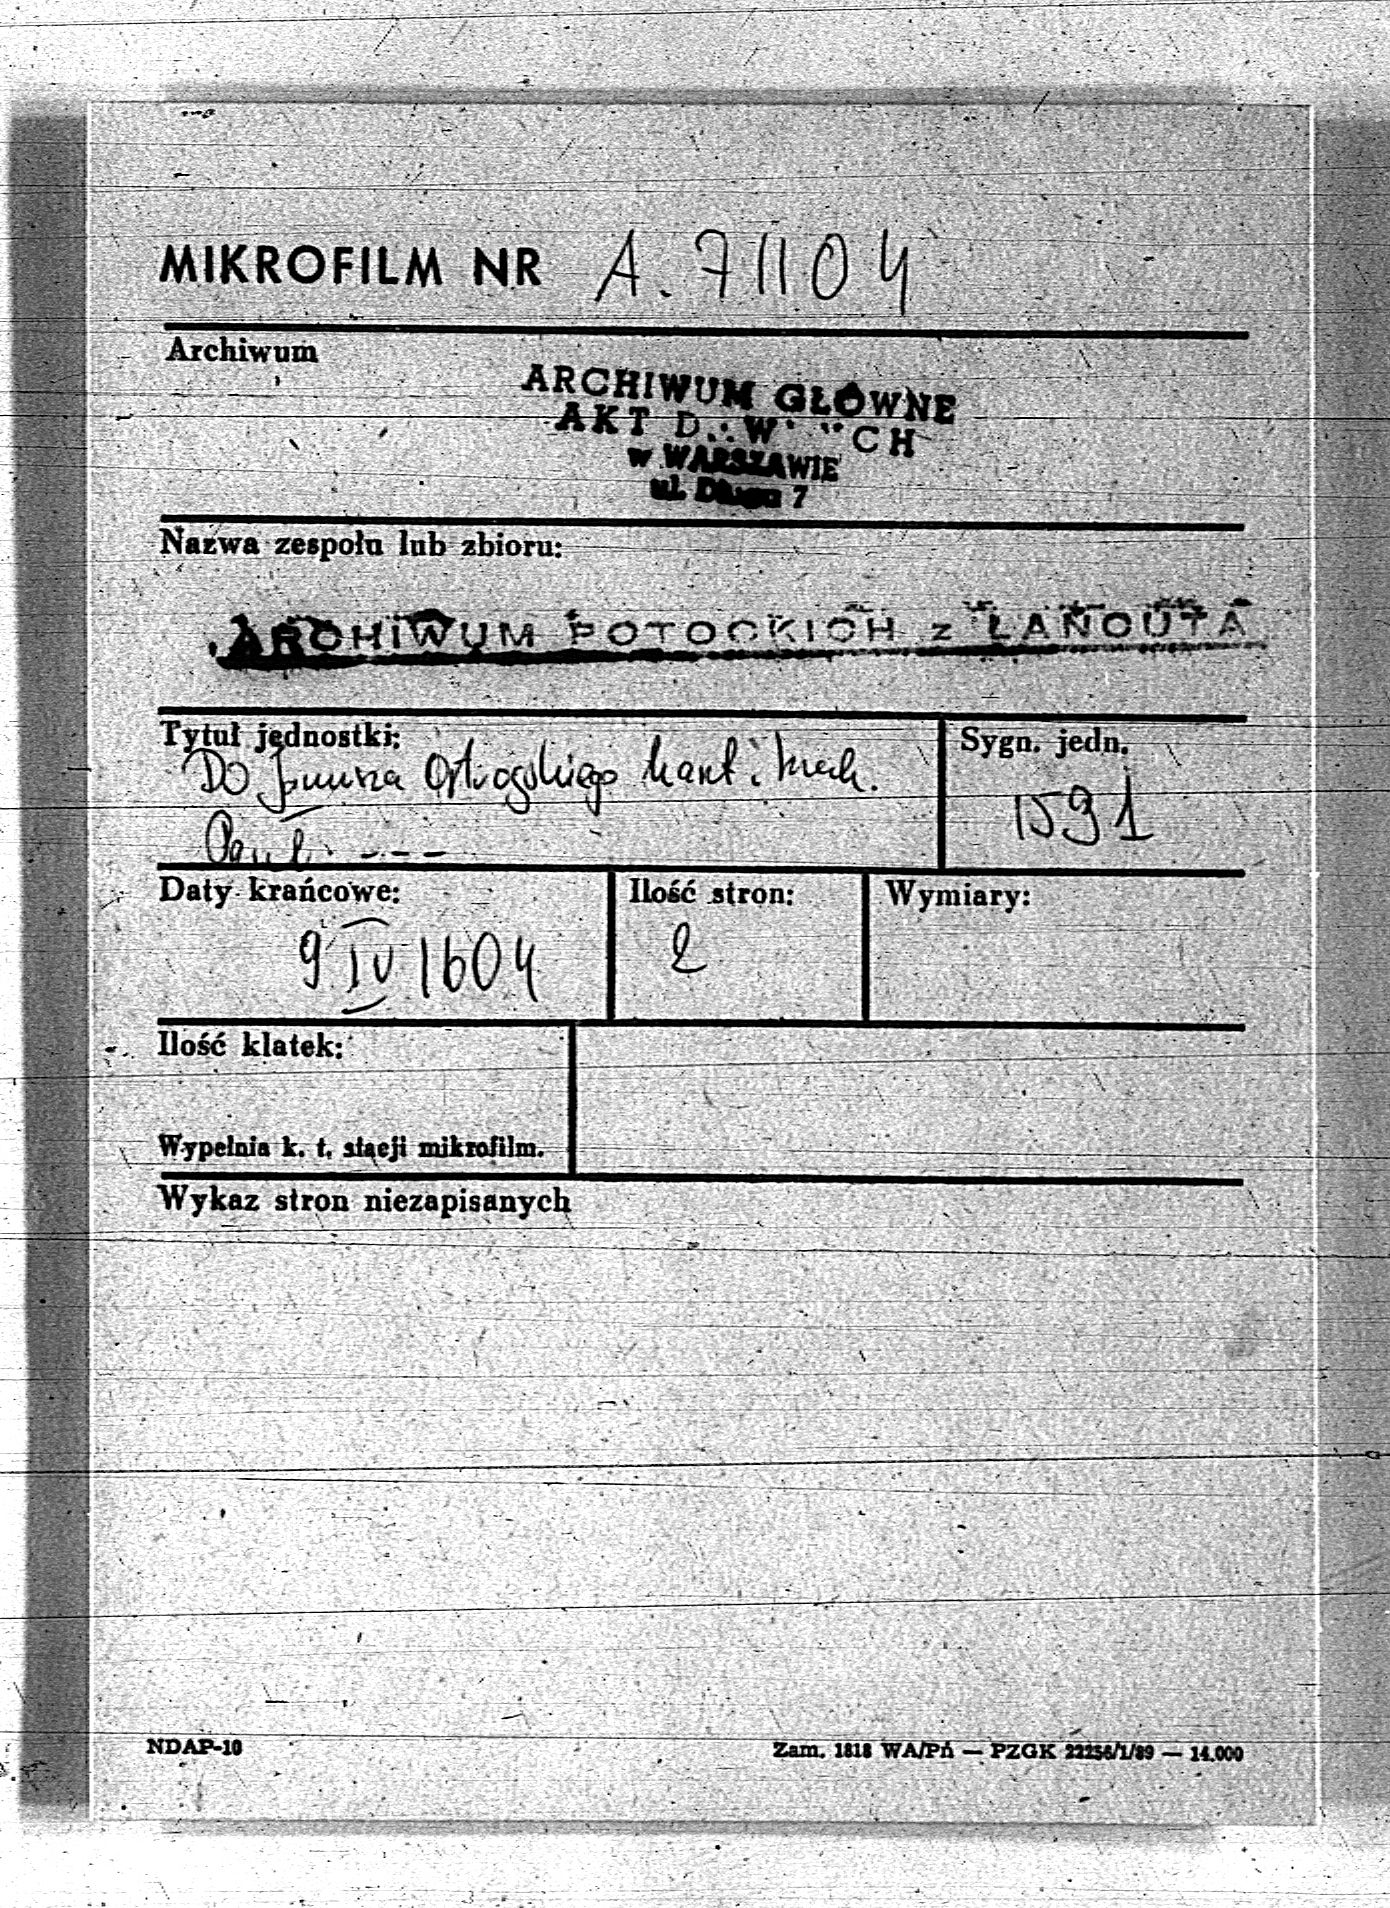 MIKROFILM NR A. 71104
Archiwum
ARCHIWUM GŁÓWNE
AKT
w WARSZAWIE
ul. Długa 7
Nazwa zespołu lub zbioru:
ARCHIWUM POTOCKICH z ŁAŃCUTA
Tytuł jednostki:
Sygn. jedn.
Do Janusza Ostrogskiego kaszt. krak.
1591
Daty krańcowe:
Ilość stron:
Wymiary:
9 IV 1604
2
Ilość klatek:
Wypełnia k. t. stacji mikrofilm.
Wykaz stron niezapisanych
NDAP-10
Zam. 1818 WA/Pń — PZGK 22256/1/89 — 14.000